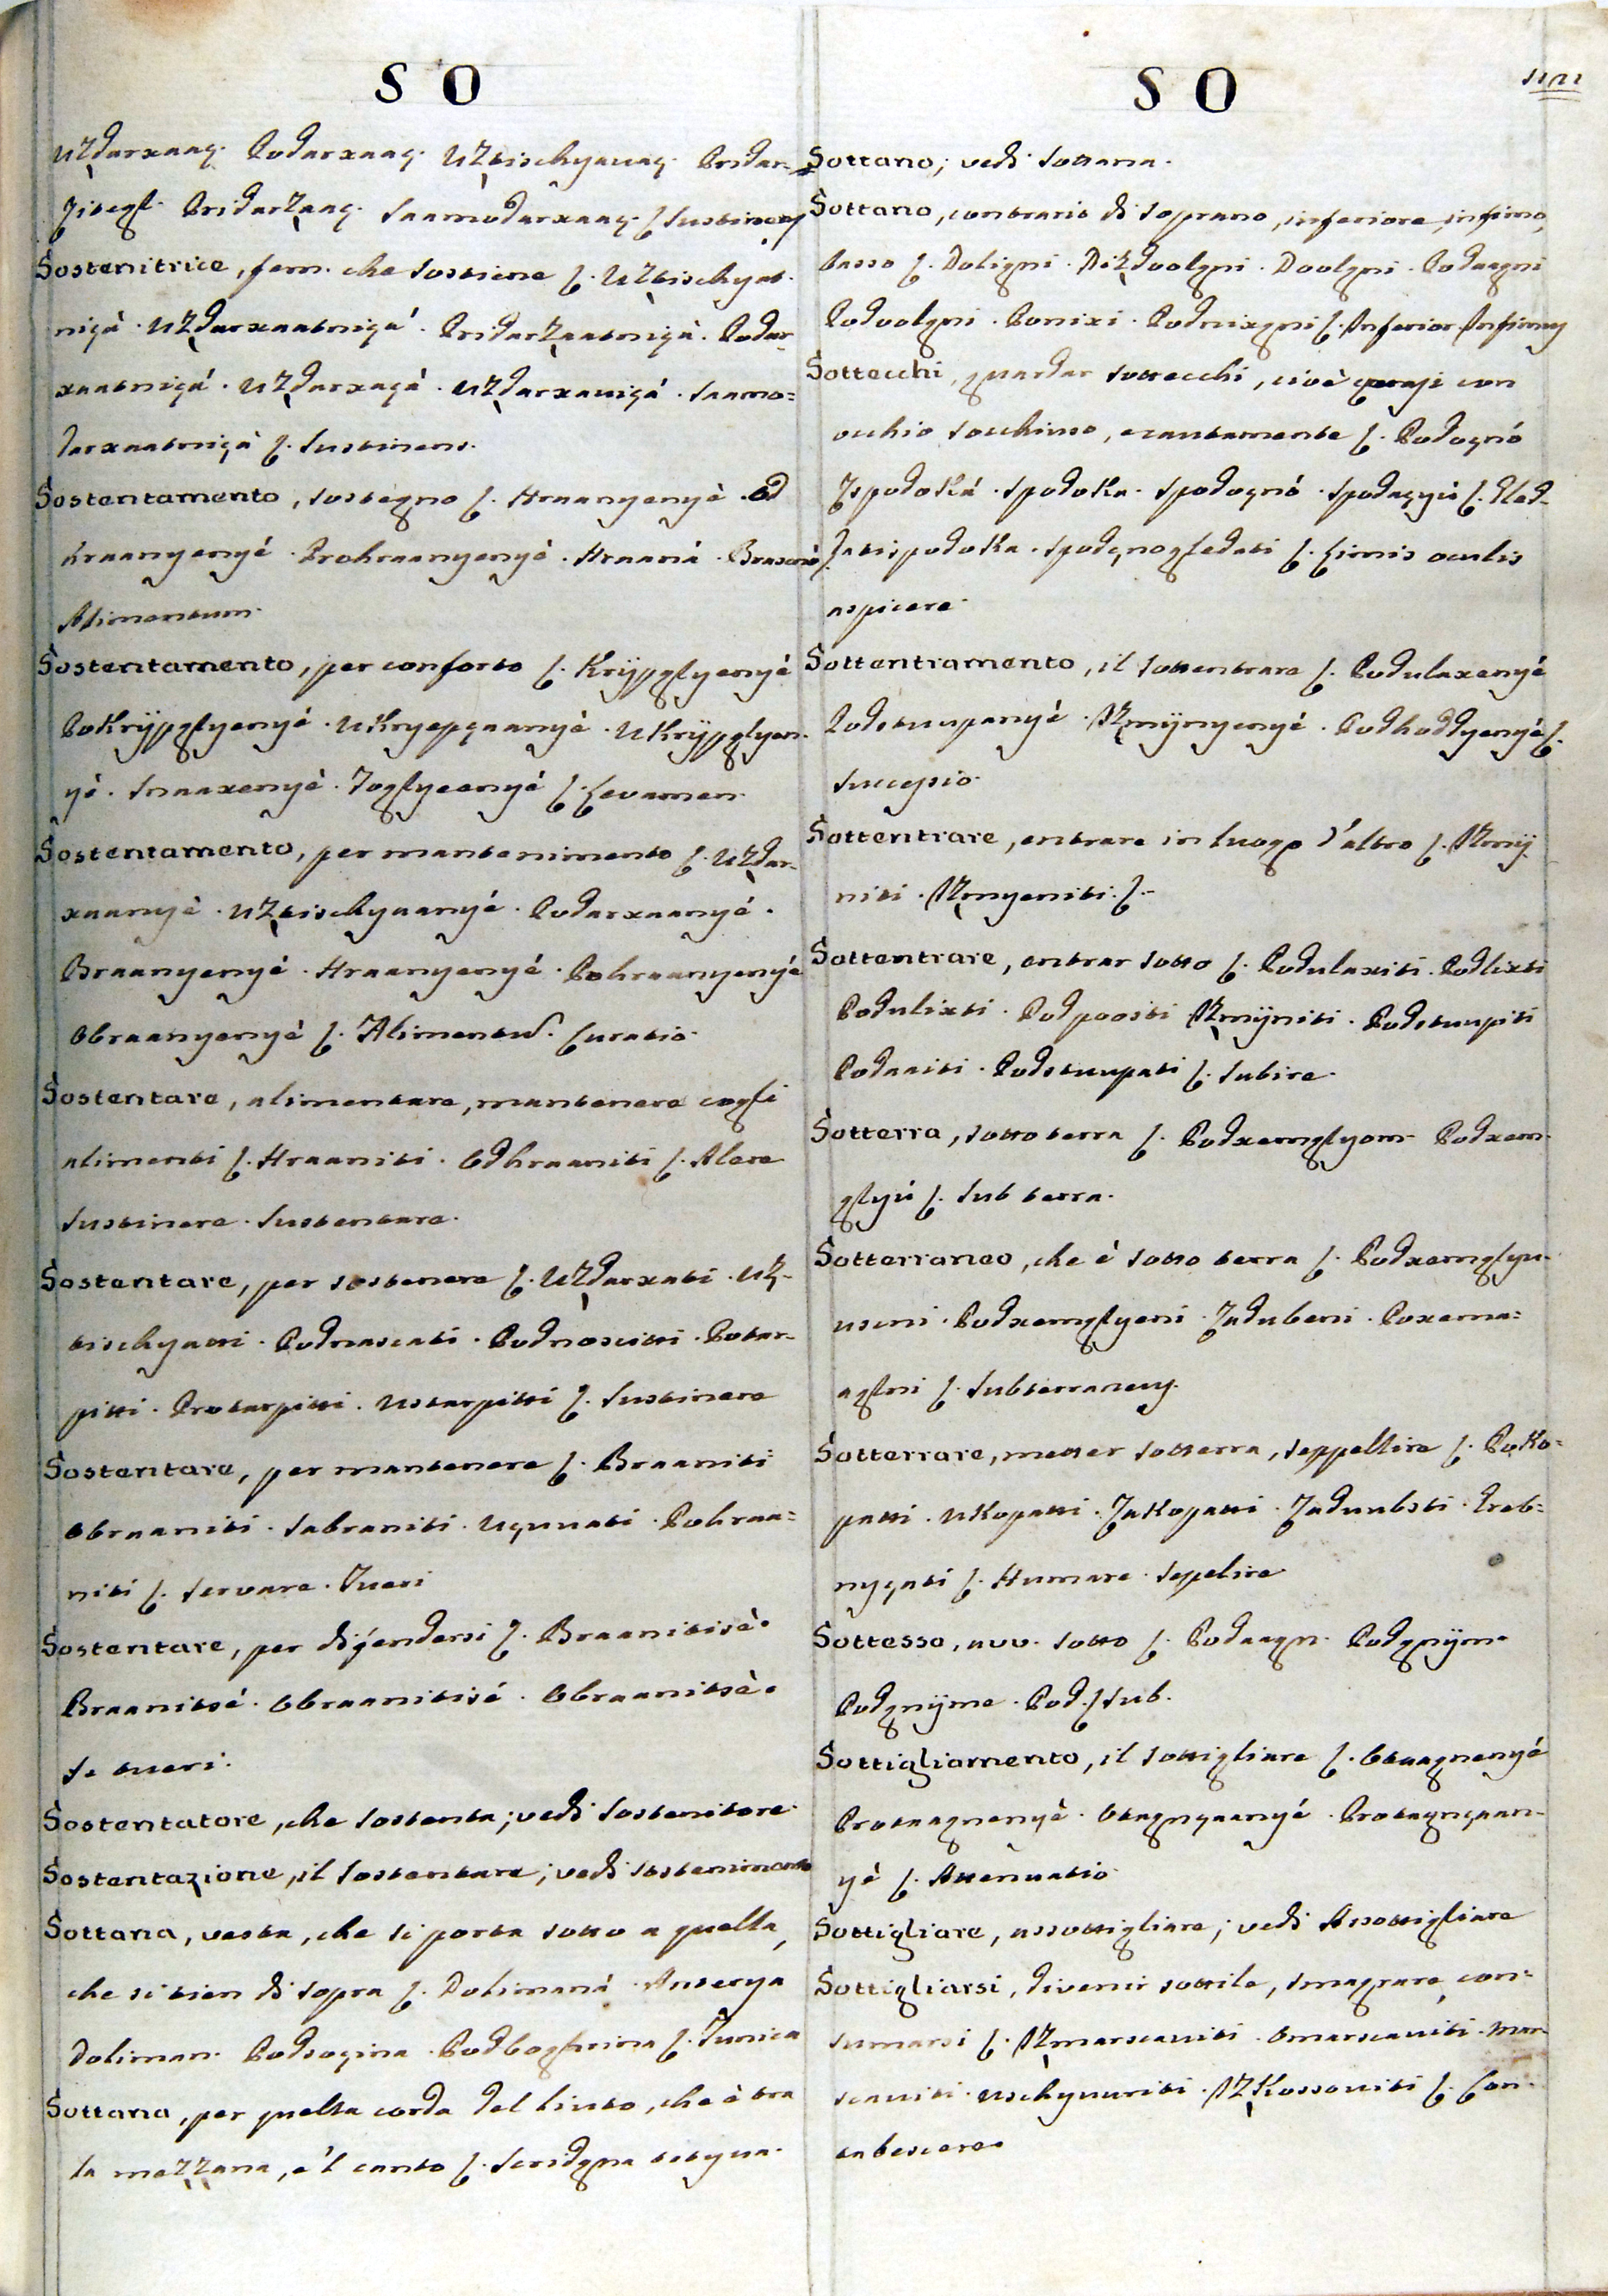 S O
Uzdarxaaç. Podarxaaç. Uztischyavaç. Pridar-
zitegl. Pridarzaaç. Saamodarxaaç. S. Sustinens
Sostenitrice, fem. che sostiene S. Uztischyat-
niçà. Uzdarxaatniçá. Pridarzaatniçà. Podar-
xaatniçá. Uzdarxaçà. Uzdarxaviçá. Saamo=
darxaatniçà S. Sustinens.
Sostentamento, sostegno S. Hraanyenyè. Od
hraanyenyé. Prohraanyenyè. Hraaná. Brascnò S.
Alimentum.
Sostentamento, per conforto S. Krijpglyenyé
Pokrijpglyenyé. Ukryepçaanyè. Ukrijpglyen-
yè. Snaaxenyè. Toglyeenyé S. Levamen.
Sostentamento, per mantenimento S. Uzdar-
xaanyè. Uztischyaanyé. Podarxaanyé.
Braanyenyè. Hraanyenyé. Pohraanyenyé
Obraanyenyè S. Alimentus. Curatio.
Sostentare, alimentare, mantenere cogli
alimenti S. Hraaniti. Odhraaniti S. Alere
Sustinere. Sustentare.
Sostentare, per sostenere S. Uzdarxati. Uz-
tischyatti. Podnascati. Podnoscitti. Potar-
pitti. Protarpitti. Ustarpitti S. Sustinere
Sostentare, per mantenere S. Braaniti
Obraaniti. Sabraniti. Uçuuati. Pohraa=
niti S. Servare. Tueri
Sostentare, per difendersi S. Braanitisè.
Braanitsé. Obraanitisé. Obraanitsè.
Se tueri.
Sostentatore, che sostenta; vedi Sostenitore.
Sostentazione, il sostentare; vedi sostenimento
Sottana, vesta, che si porta sotto a quella,
che si tien di sopra S. Dolimaná. Anterya
Doliman. Podsoçina. Podboghnina S. Tunica
Sottana, per quella corda del liuto, che è tra
la mezzana, e 'l canto S. Sridgna tetyva.
S O
Sottano; vedi sottana.
Sottano, contrario di soprano, inferiore, infimo,
basso S. Doligni. Dizdoolgni. Doolgni. Podaagni
Podoolgni. Ponixi. Podnixgni S. Inferior. Infimus
Sottecchi, guardar sottecchi, cioè quasi con
occhio socchiuso, e cautamente S. Podoçnó
Ispodoká. Spodoka. Spodoçnó. Spodaçyù S. Gled-
datispodoka. Spodçnogledati S. Limis oculis
aspicere.
Sottentramento, il sottentrare S. Podulaxenyé
Podstuupanyè. Izmijnyenyé. Podhoddyenyé S.
Successio.
Sottentrare, entrare in luogo d'altro S. Izmij-
niti. Izmyeniti. S.-
Sottentrare, entrar sotto S. Podulaxiti. Podlixti
Podulixti. Podpoositi Izmijniti. Podstuupiti
Podaaiti. Podstuupati S. Subire.
Sotterra, sotto terra S. Podxemglyom. Podxem-
glyú S. Sub terra.
Sotterraneo, che è sotto terra S. Podxemglya-
uscni. Podxemglyeni. Zadubeni. Poxema=
aglni S. Subterraneus.
Sotterrare, metter sotterra, seppellire S. Poko=
patti. Ukopatti. Zakopatti. Zaduubsti. Greb=
nyçati S. Humare. Sepelire
Sottesso, avv. sotto S. Podaagn. Podgnijm.
Podgnijme. Pod. S Sub.
Sottigliamento, il sottigliare S. Otaagnenyé
Protaagnenyè. Otagnçaanyé. Protagnçaan-
yè S. Attenuatio
Sottigliare, assottigliare; vedi Assottigliare
Sottigliarsi, divenir sottile, smagrare, con=
sumarsi S. Izmarscaviti. Omarscaviti. Mar-
scaviti. Uschyuuriti. Izkossoviti S. Con-
tabescere.